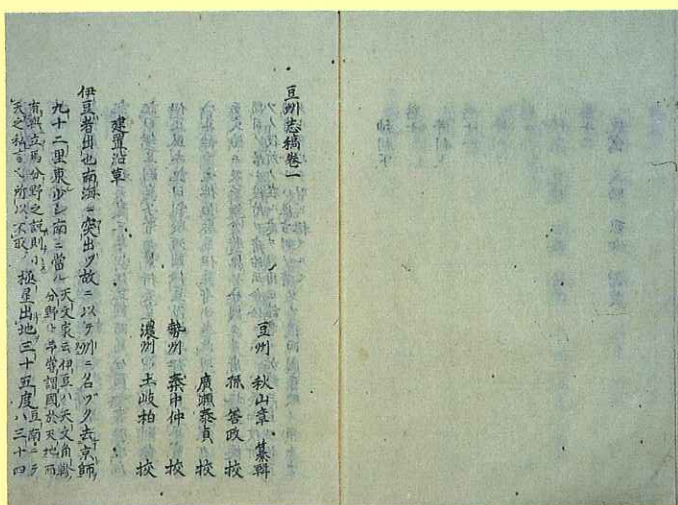 豆州志稿卷一
豆州 秋山章 纂輯
佩 善政 挍
廣瀬泰貞 挍
勢州 秦中仲 挍
濃州 土岐柏 挍
建置沿革
伊豆者出也南海ニ突出ヅ故ニ以テ州ニ名ヅク去京師
九十二里東少シ南ニ當ル天文家云伊豆ハ天文角
分野ト予嘗謂國於天地而
有與立焉分野之説則小
天之私言也所以不取 極星出地三十五度豆南ニテハ三十四